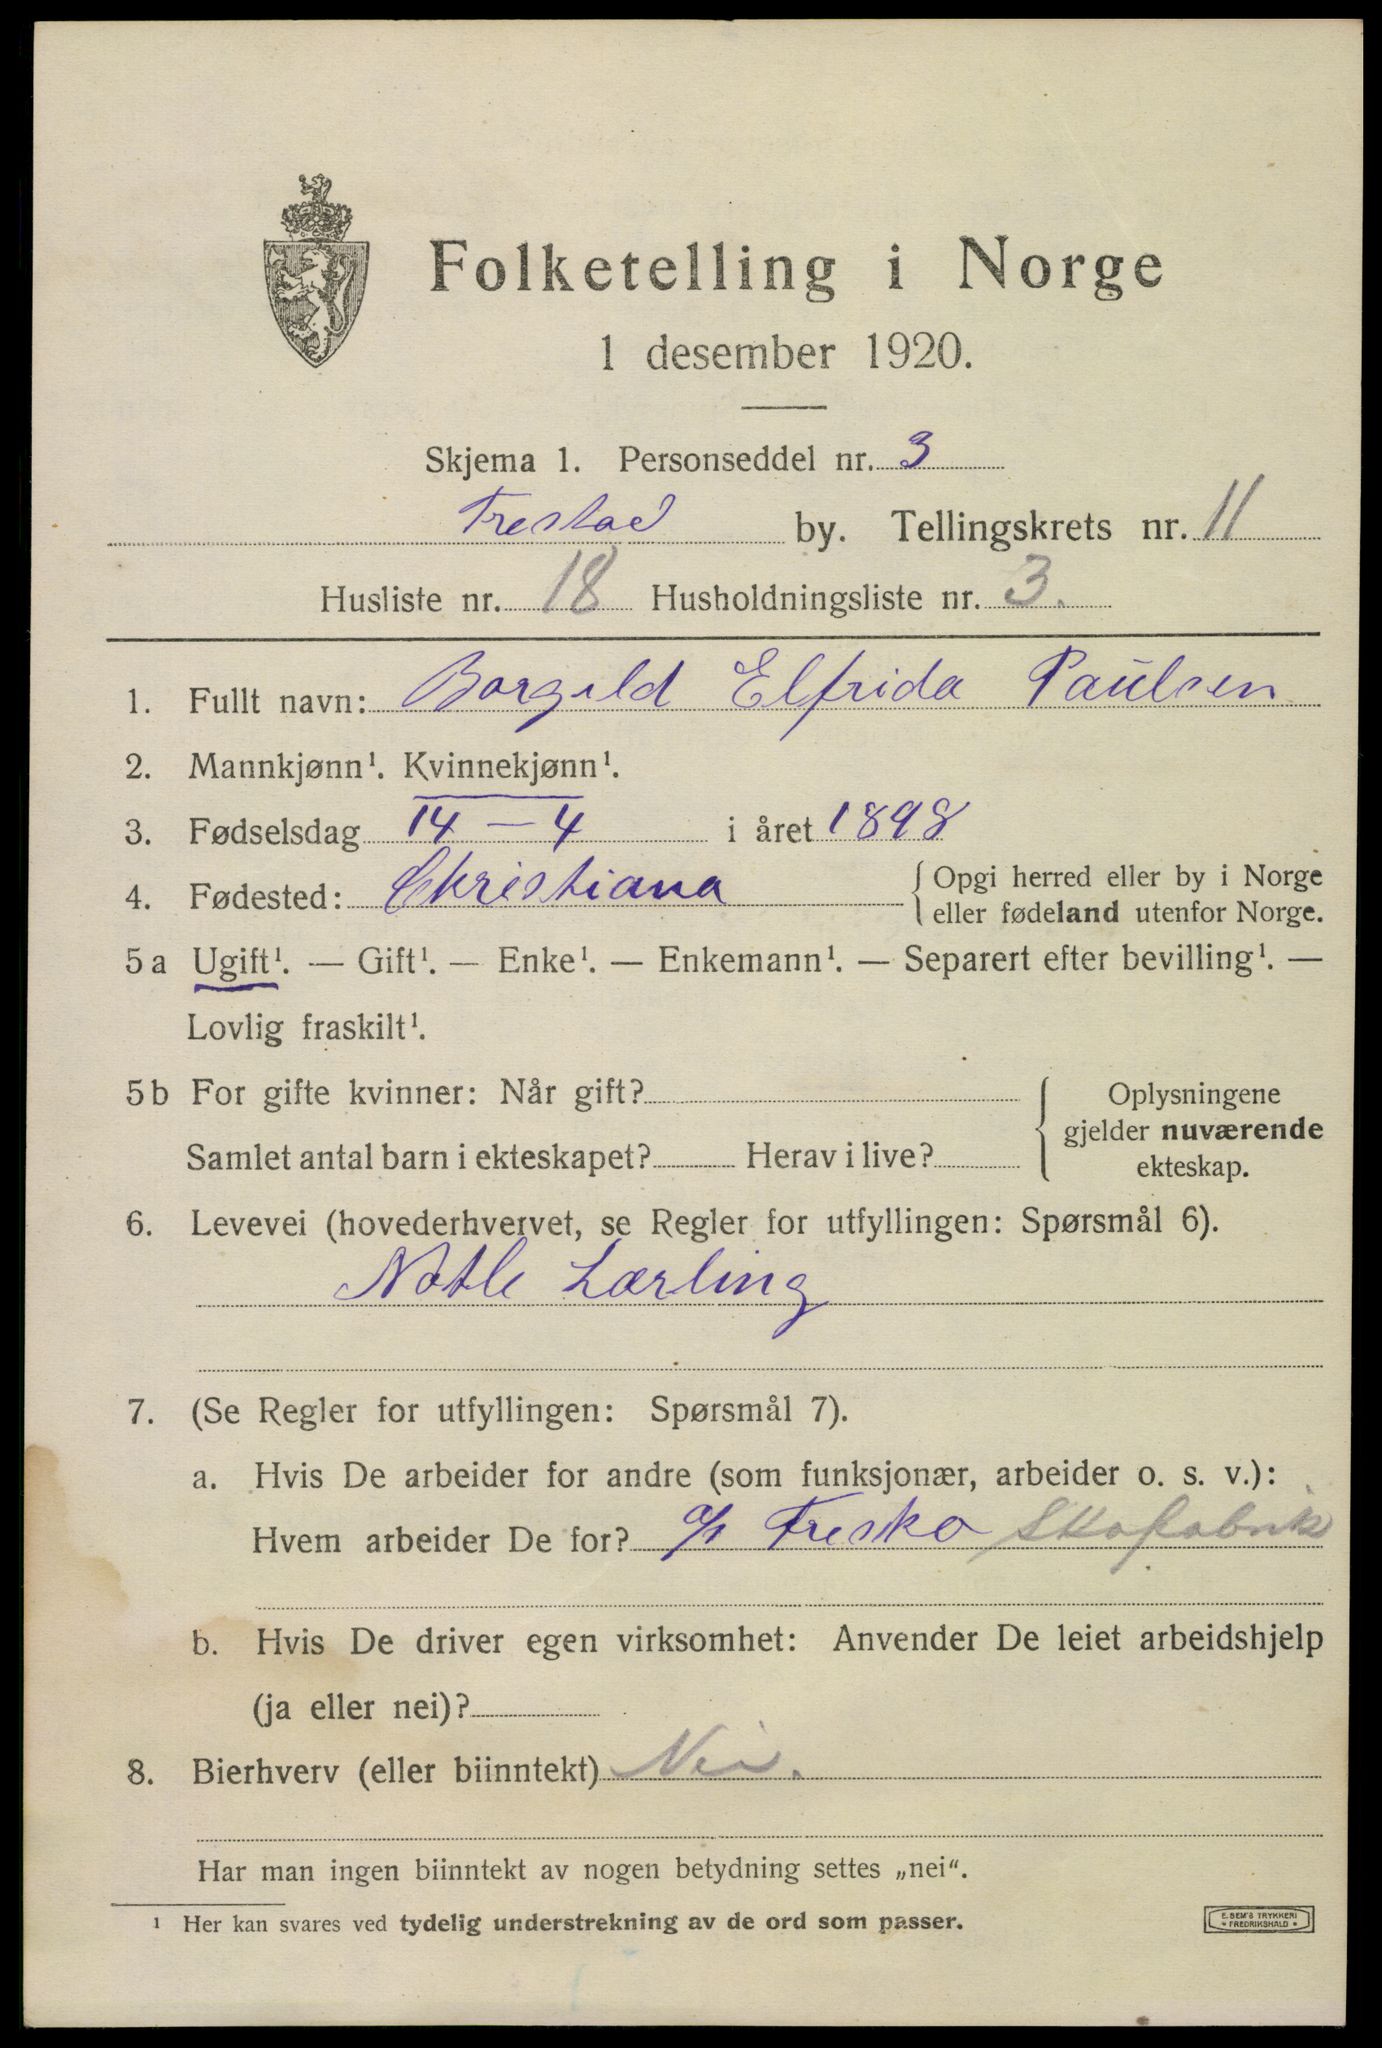 Folketelling i Norge
1 desember 1920.
Skjema 1. Personseddel nr. 3
Frestad by. Tellingskrets nr. 11
Husliste nr. 18 Husholdningsliste nr. 3.
1. Fullt navn: Borgild Elfrida Paulsen
2. Mannkjønn¹. Kvinnekjønn¹.
3. Fødselsdag 14 - 4 i året 1898
4. Fødested: Christiana { Opgi herred eller by i Norge
eller fødeland utenfor Norge.
5 a Ugift¹. — Gift¹. — Enke¹. — Enkemann¹. — Separert efter bevilling¹. —
Lovlig fraskilt¹.
5 b For gifte kvinner: Når gift? { Oplysningene
gjelder nuværende
Samlet antal barn i ekteskapet? Herav i live?
ekteskap.
6. Levevei (hovederhvervet, se Regler for utfyllingen: Spørsmål 6).
Notle Lærling
7. (Se Regler for utfyllingen: Spørsmål 7).
a. Hvis De arbeider for andre (som funksjonær, arbeider o. s. v.):
Hvem arbeider De for? a/s Fresko Skofabrik
b. Hvis De driver egen virksomhet: Anvender De leiet arbeidshjelp
(ja eller nei)?
8. Bierhverv (eller biinntekt) Nei.
Har man ingen biinntekt av nogen betydning settes „nei“.
¹ Her kan svares ved tydelig understrekning av de ord som passer.
E. SEM'S TRYKKERI
• FREDRIKSHALD •